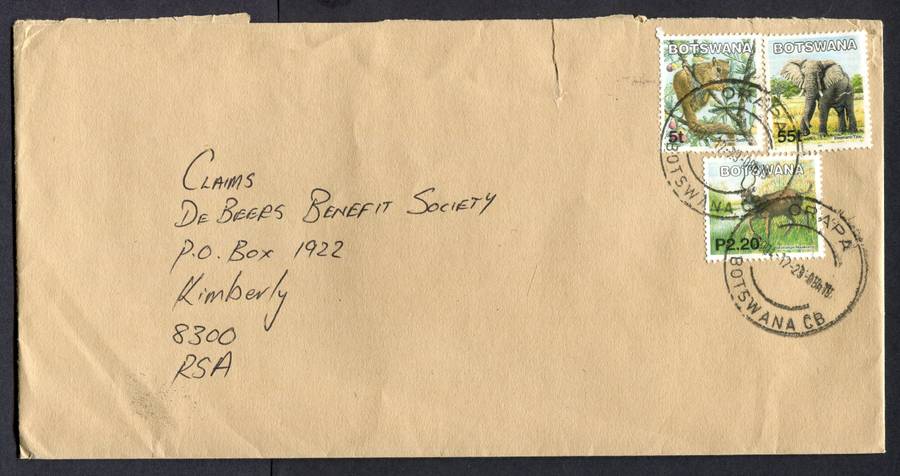 BOTSWANA
5t
BOTSWANA
55t
BOTSWANA
P2.20
ORAPA
BOTSWANA
ORAPA
BOTSWANA C.B.
CLAIMS
DE BEERS BENEFIT SOCIETY
P.O. Box 1922
Kimberly
8300
RSA